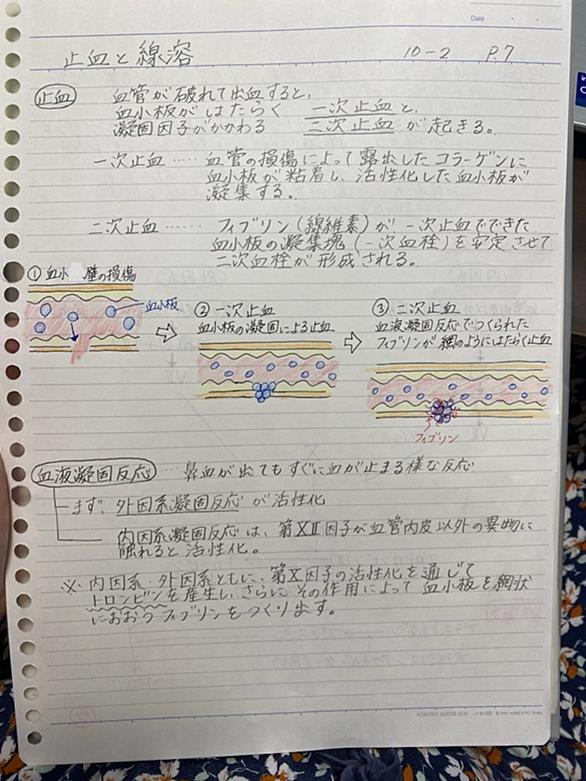 Date
止血と線溶 10-2 P.7
止血 血管が破れて出血すると、
血小板がはたらく 一次止血と、
凝固因子がかかわる 二次止血が起きる。
一次止血 ‥‥‥ 血管の損傷によって露出したコラーゲンに
血小板が粘着し、活性化した血小板が
凝集する。
二次止血 ‥‥‥ フィブリン(線維素)が一次止血でできた
血小板の凝集塊(一次血栓)を安定させて
二次血栓が形成される。
① 血小 壁の損傷
血小板
② 一次止血
血小板の凝固による止血
③ 二次止血
血液凝固反応でつくられた
フィブリンが網のようにはたらく止血
フィブリン
血液凝固反応 ‥‥ 鼻血が出てもすぐに血が止まる様な反応
まず、外因系凝固反応が活性化
内因系凝固反応は、第XII因子が血管内皮以外の異物に
触れると活性化。
※ 内因系・外因系ともに、第X因子の活性化を通じて
トロンビンを産生し、さらにその作用によって血小板を網状
におおうフィブリンをつくり出す。